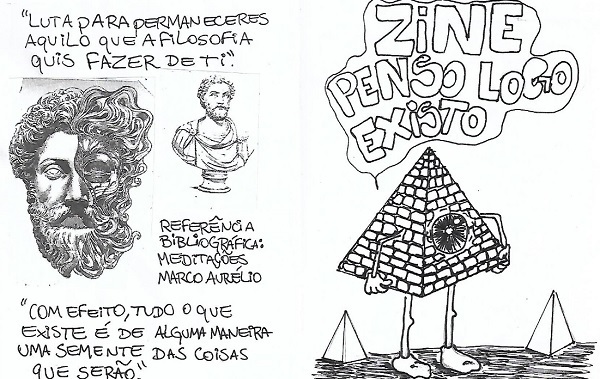 "LUTA PARA PERMANECERES
AQUILO QUE A FILOSOFIA
QUIS FAZER DE TI".
REFERÊNCIA
BIBLIOGRÁFICA:
MEDITAÇÕES
MARCO AURÉLIO
"COM EFEITO, TUDO O QUE
EXISTE É DE ALGUMA MANEIRA
UMA SEMENTE DAS COISAS
QUE SERÃO".
ZINE
PENSO LOGO
EXISTO